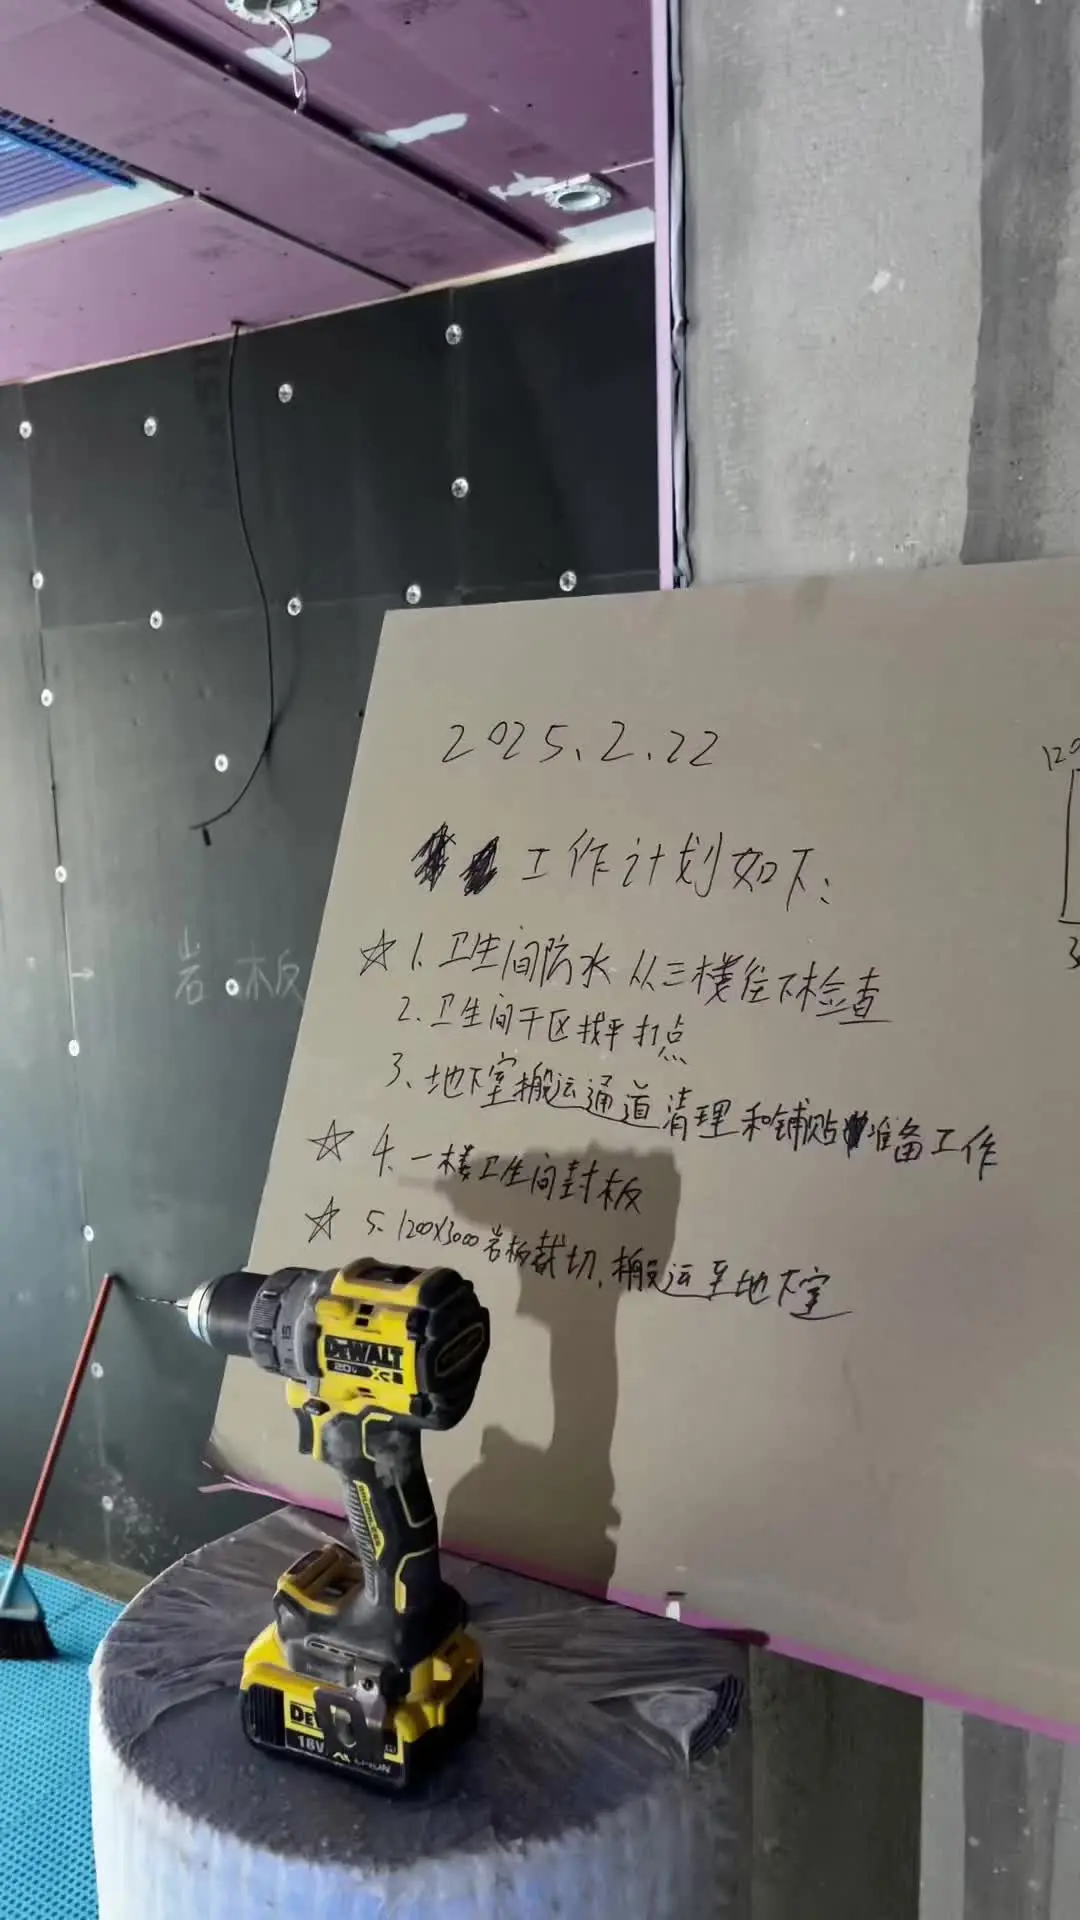 2025.2.22
工作计划如下:
☆ 1. 卫生间防水 从三楼往下检查
2. 卫生间干区找平打点
3、地下室搬运通道清理和铺贴准备工作
☆ 4、一楼卫生间封板
☆ 5、1200X3000岩板裁切,搬运至地下室
岩板
120
3
DEWALT
20V XR
15
BRUSHLESS
18V